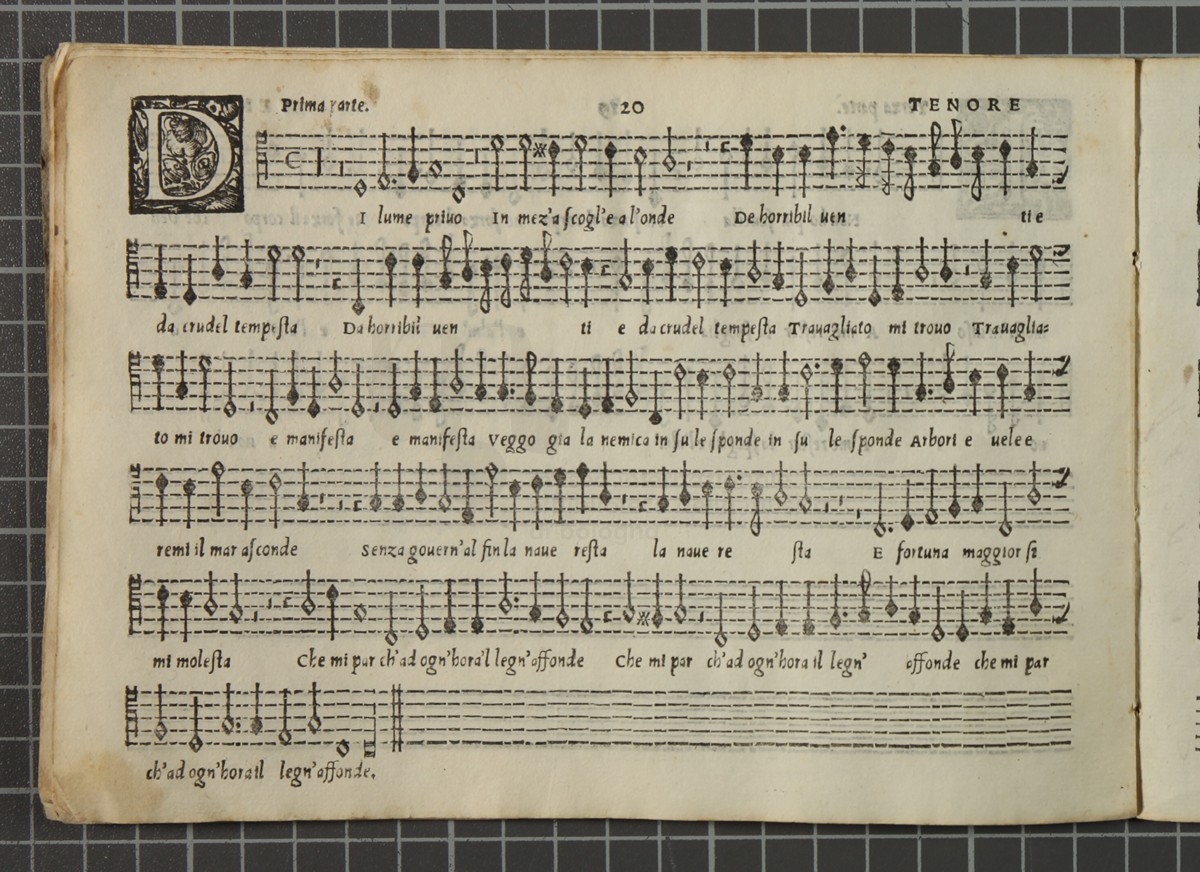 Prima parte. 20 TENORE
DI lume priuo In mez'a ſcogl'e a l'onde De horribil uen ti e
da crudel tempeſta Da horribil uen ti e da crudel tempeſta Trauagliato mi trouo Trauaglia=
to mi trouo e manifeſta e manifeſta Veggo gia la nemica in ſu le ſponde in ſu le ſponde Arbori e uele e
remi il mar aſconde Senza gouern'al fin la naue reſta la naue re ſta E fortuna maggior ſi
mi moleſta Che mi par ch'ad ogn'hora'l legn'affonde Che mi par ch'ad ogn'hora il legn' affonde che mi par
ch'ad ogn'hora il legn'affonde.